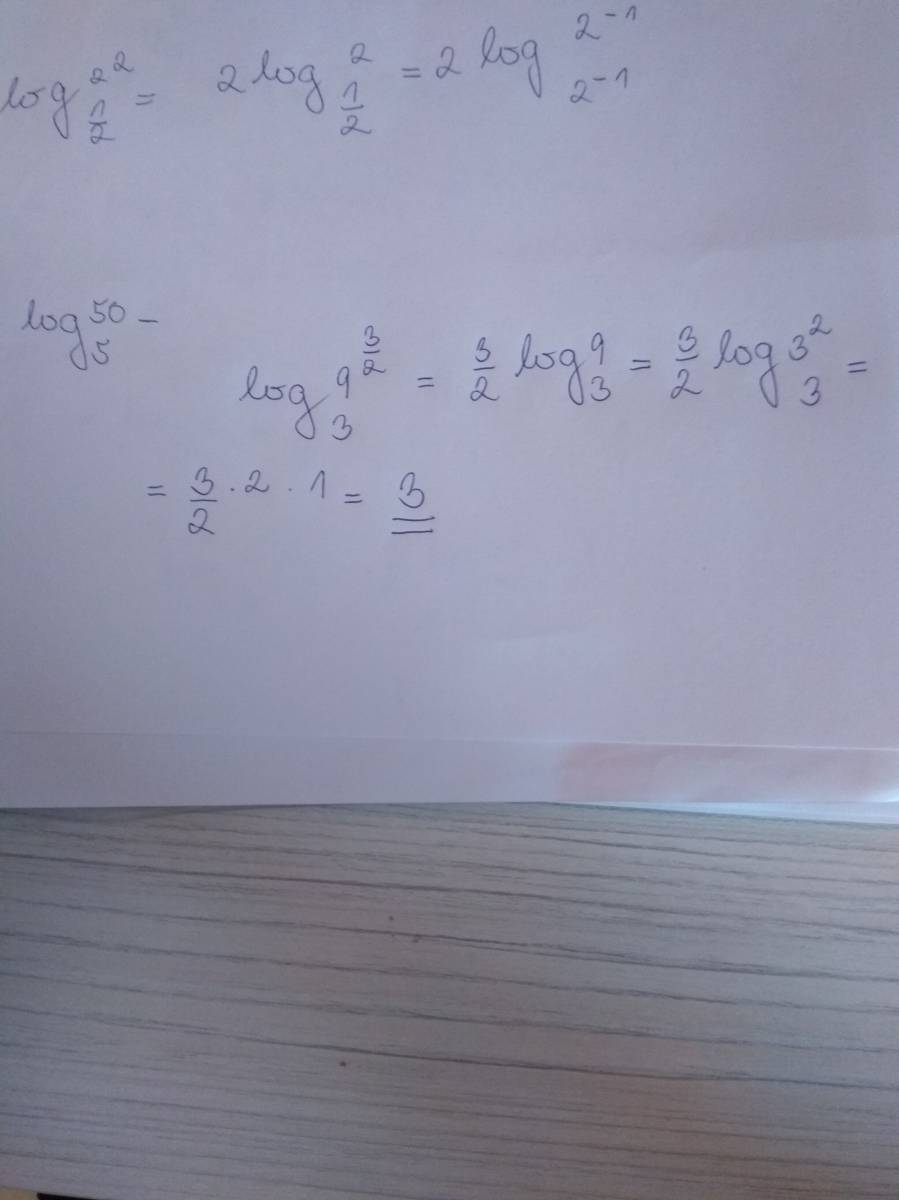 log_{1/2} 2^2 = 2 log_{1/2} 2 = 2 log_{2^{-1}} 2^{-1}
log_5 50 -
log_3 9^{3/2} = 3/2 log_3 9 = 3/2 log_3 3^2 =
= 3/2 · 2 · 1 = 3